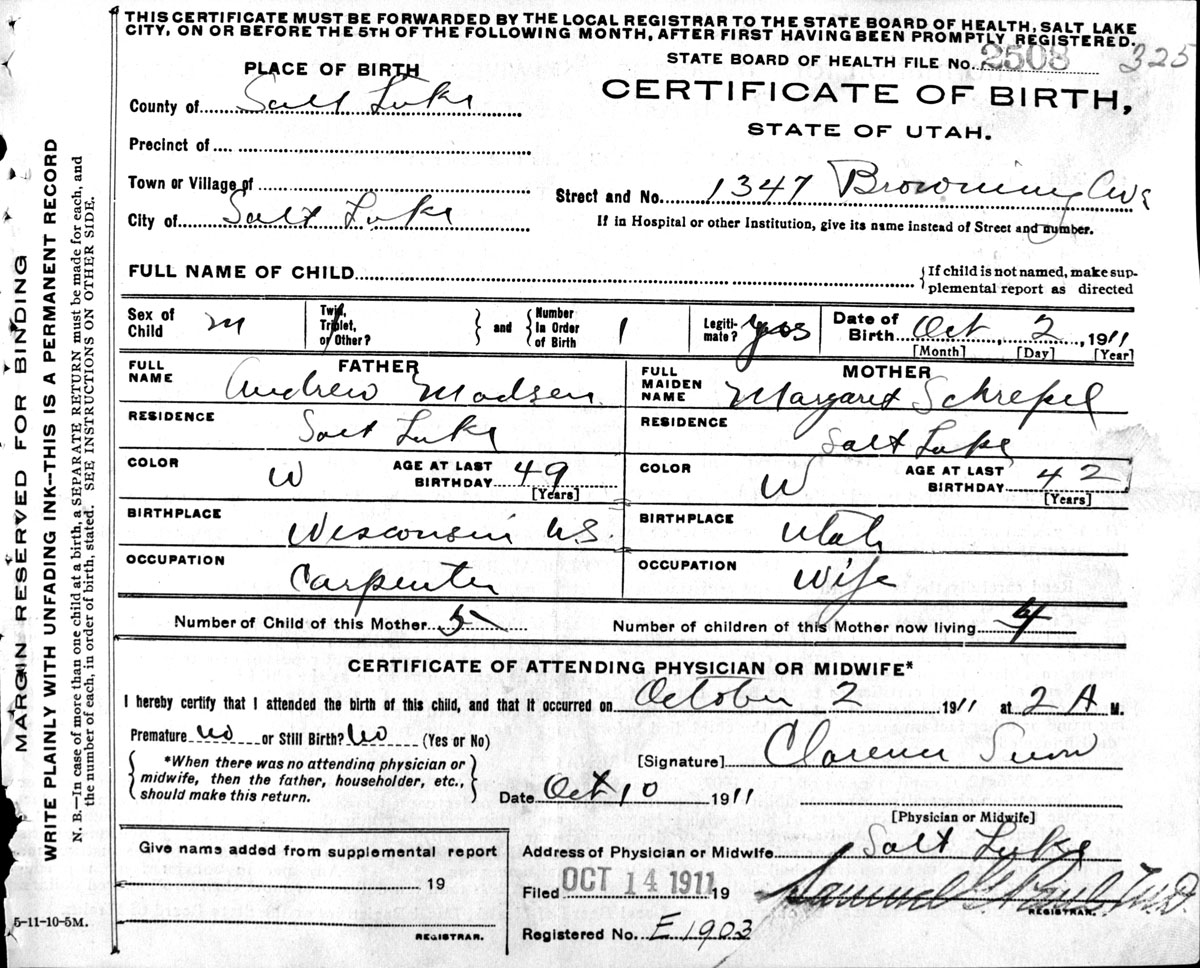 THIS CERTIFICATE MUST BE FORWARDED BY THE LOCAL REGISTRAR TO THE STATE BOARD OF HEALTH, SALT LAKE
CITY, ON OR BEFORE THE 5TH OF THE FOLLOWING MONTH, AFTER FIRST HAVING BEEN PROMPTLY REGISTERED.
STATE BOARD OF HEALTH FILE No. 2508 325
PLACE OF BIRTH
CERTIFICATE OF BIRTH,
STATE OF UTAH.
County of Salt Lake
Precinct of
Town or Village of
Street and No. 1347 Browning Ave
City of Salt Lake
If in Hospital or other Institution, give its name instead of Street and number.
FULL NAME OF CHILD
If child is not named, make sup-
plemental report as directed
Sex of Child m
Twin, Triplet, or Other?
and
Number In Order of Birth 1
Legiti-mate? yes
Date of Birth Oct 2, 1911
[Month] [Day] [Year]
FATHER
FULL NAME Andrew Madsen
MOTHER
FULL MAIDEN NAME Margaret Schrepel
RESIDENCE Salt Lake
RESIDENCE Salt Lake
COLOR W AGE AT LAST BIRTHDAY 49 [Years]
COLOR W AGE AT LAST BIRTHDAY 42 [Years]
BIRTHPLACE Wisconsin U.S.
BIRTHPLACE Utah
OCCUPATION Carpenter
OCCUPATION Wife
Number of Child of this Mother 5
Number of children of this Mother now living 4
CERTIFICATE OF ATTENDING PHYSICIAN OR MIDWIFE*
I hereby certify that I attended the birth of this child, and that it occurred on October 2 1911 at 2 A M.
Premature No or Still Birth? No (Yes or No)
*When there was no attending physician or
midwife, then the father, householder, etc.,
should make this return.
[Signature] Clarence
Date Oct 10 1911
[Physician or Midwife]
Give name added from supplemental report
19
REGISTRAR.
Address of Physician or Midwife Salt Lake
Filed OCT 14 1911 19
Samuel G. Paul M.D.
REGISTRAR.
Registered No. E 1903
5-11-10-5M.
MARGIN RESERVED FOR BINDING
WRITE PLAINLY WITH UNFADING INK—THIS IS A PERMANENT RECORD
N. B.—In case of more than one child at a birth, a SEPARATE RETURN must be made for each, and
the number of each, in order of birth, stated. SEE INSTRUCTIONS ON OTHER SIDE.